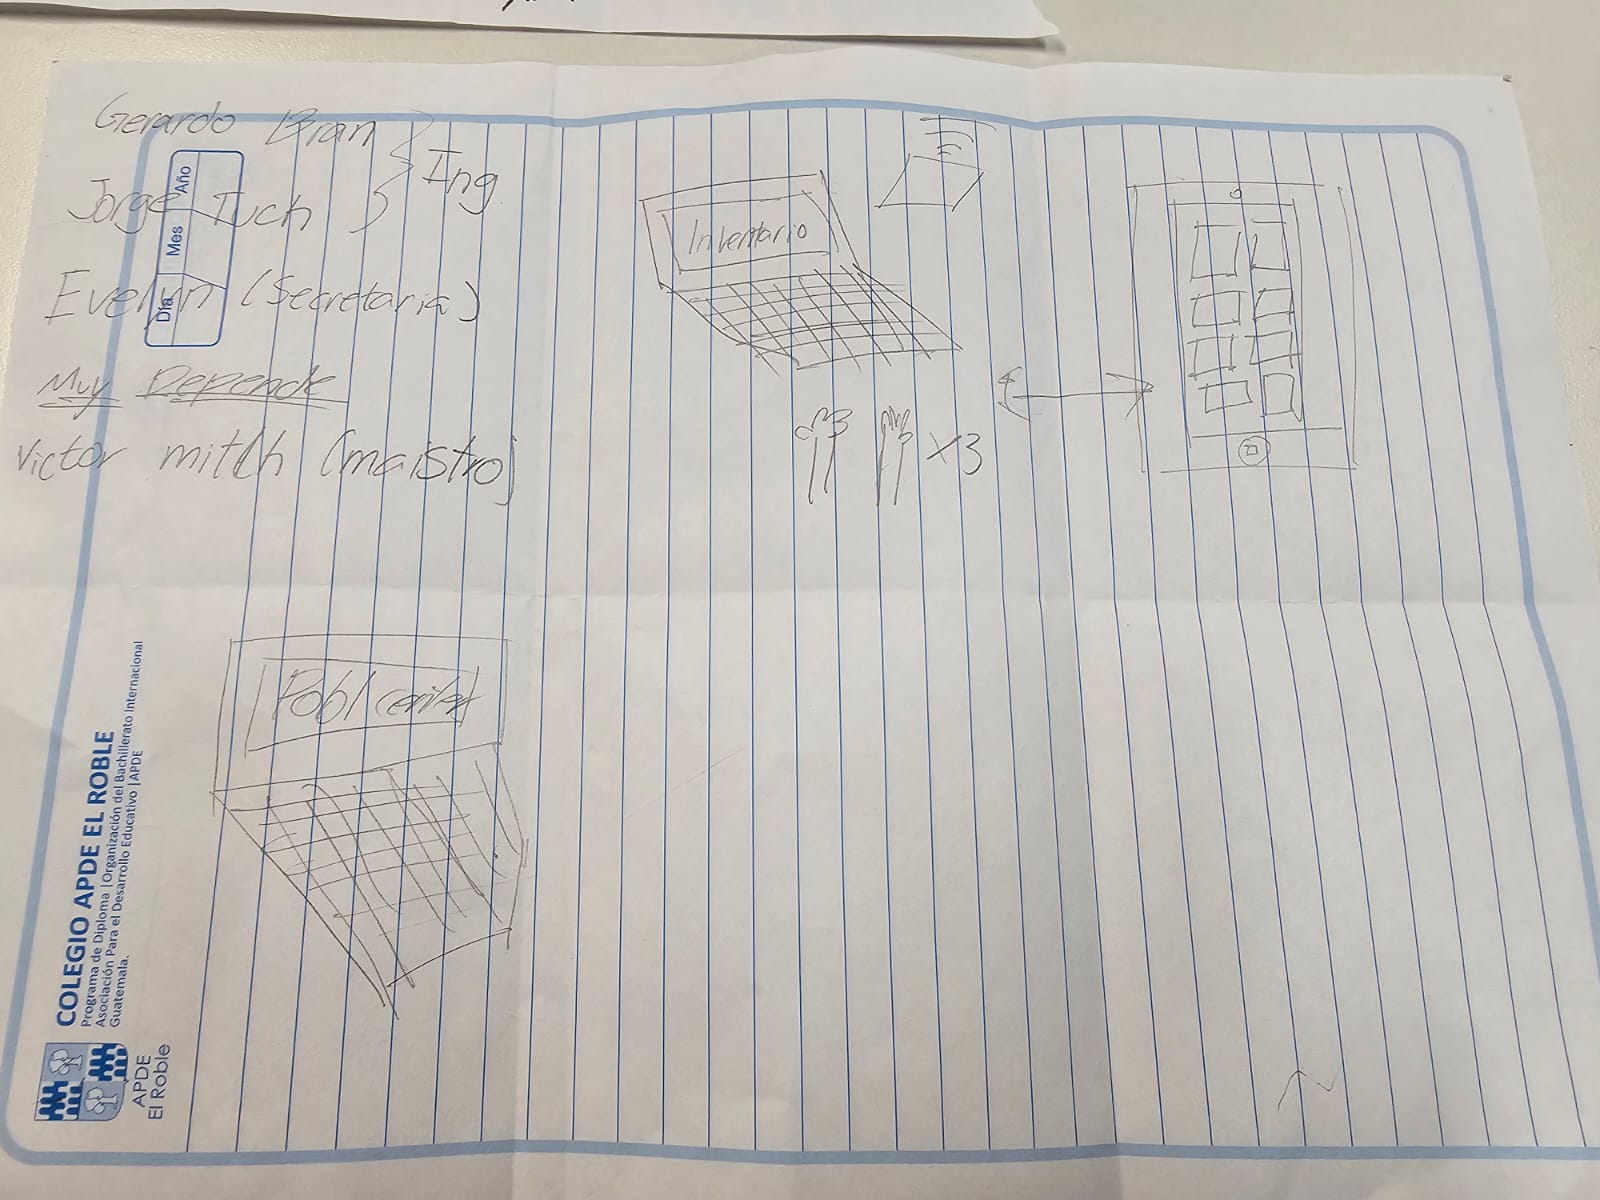 Gerardo Bran
Jorge Tuch
Ing.
Evelyn (Secretaria)
Muy Depende
Victor mitch (maistro)
Día Mes Año
Inventario
x3
COLEGIO APDE EL ROBLE
Programa de Diploma | Organización del Bachillerato Internacional
Asociación Para el Desarrollo Educativo | APDE
Guatemala.
APDE
El Roble